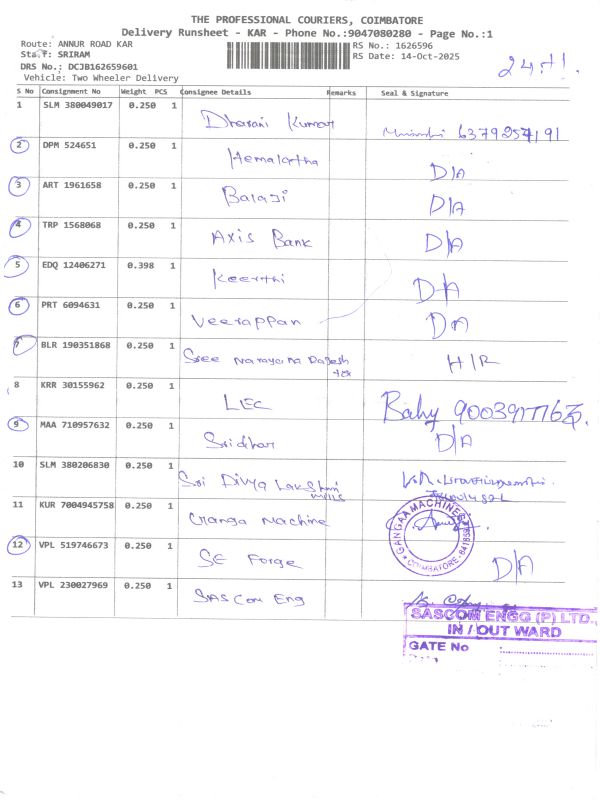 THE PROFESSIONAL COURIERS, COIMBATORE
Delivery Runsheet - KAR - Phone No.:9047080280 - Page No.:1
Route: ANNUR ROAD KAR
RS No.: 1626596
Staff: SRIRAM
RS Date: 14-Oct-2025
DRS No.: DCJB162659601
Vehicle: Two Wheeler Delivery
S No Consignment No Weight PCS Consignee Details Remarks Seal & Signature
1 SLM 380049017 0.250 1 Dharani Kumar 6379257191
2 DPM 524651 0.250 1 Hemalatha D/A
3 ART 1961658 0.250 1 Balaji D/A
4 TRP 1568068 0.250 1 Axis Bank D/A
5 EDQ 12406271 0.398 1 Keerthi D/A
6 PRT 6094631 0.250 1 Veerappan D/A
7 BLR 190351868 0.250 1 Sree Narayana Rajesh tex H/R
8 KRR 30155962 0.250 1 LEC
9 MAA 710957632 0.250 1 Sridhar D/A
10 SLM 380206830 0.250 1 Sri Divya Lakshmi mills
11 KUR 7004945758 0.250 1 Ganga Machine
GANGAA MACHINES
COIMBATORE
12 VPL 519746673 0.250 1 SE Forge D/A
13 VPL 230027969 0.250 1 SAS Com Eng
SASCOM ENGG (P) LTD.,
IN / OUT WARD
GATE No